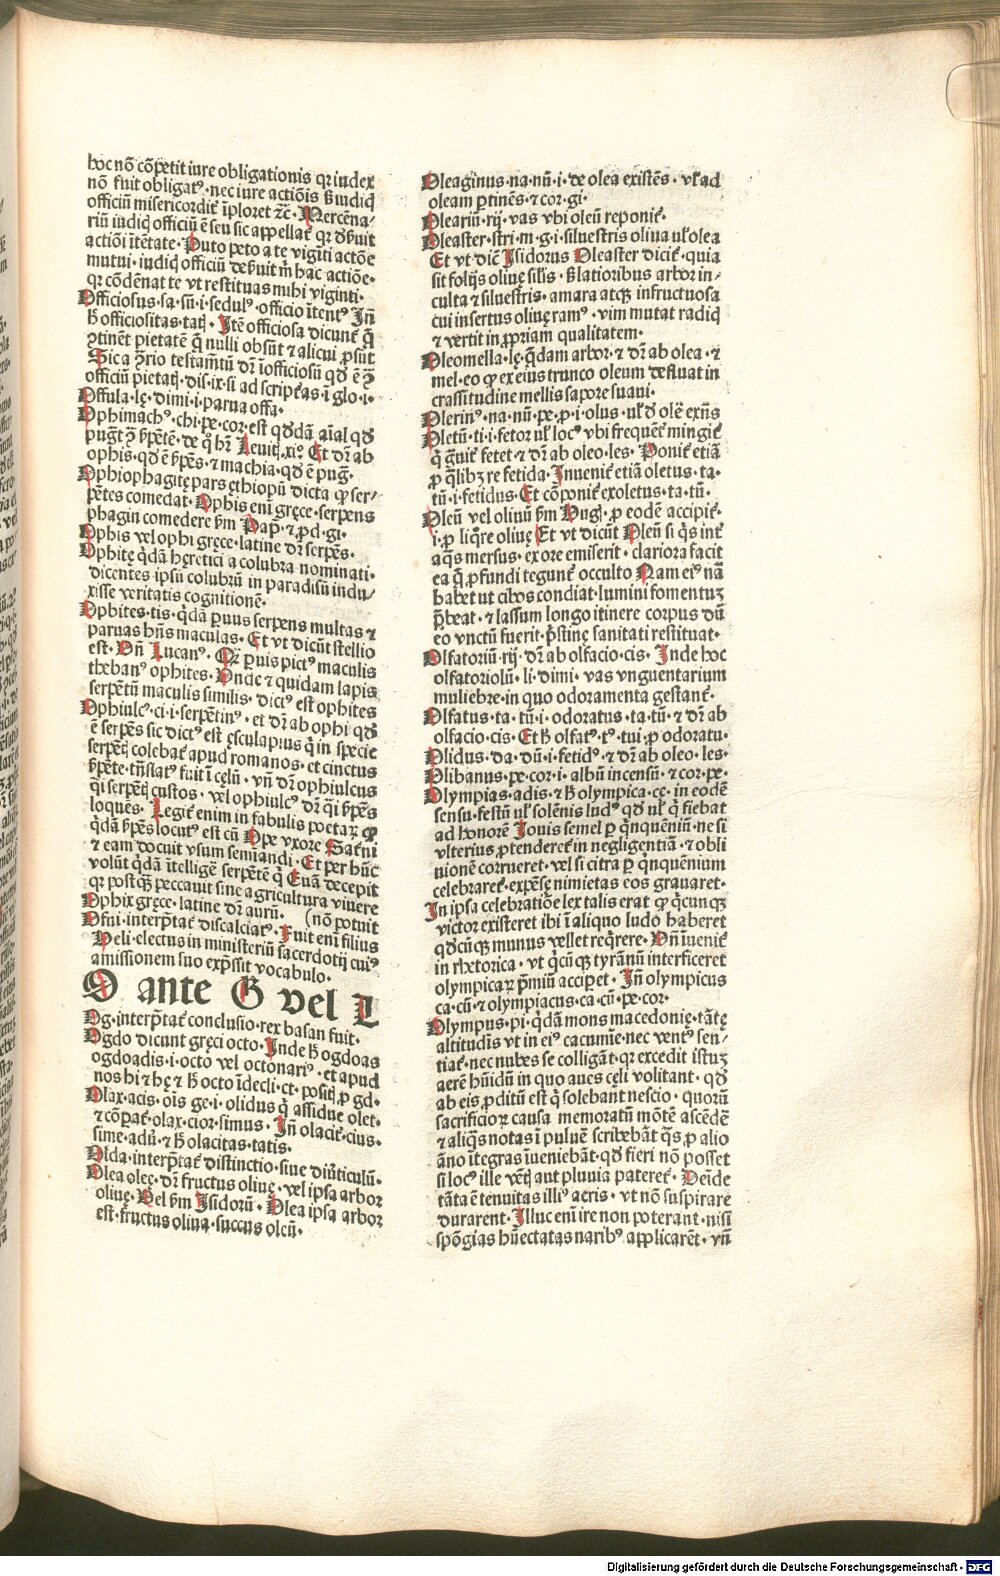 hoc nō cōpetit iure obligationis qr iudex
nō fuit obligatꝰ · nec iure actiōis ß iudiq
officiū misericordit̄ īploret ⁊c̄ · Mercena/
riū iudiq officiū ē seu sic appellat̄ qr dēbuit
actiōi ītētate · Puto peto a te viginti actōe
mutui · iudiq officiū debuit m̄ hac actiōe ·
qr cōdēnat te vt restituas mihi viginti ·
Officiosus · sa · sū · i · sedulꝰ · officio ītentꝰ Jn̄
h̄ officiositas · tatꝭ · Jtē officiosa dicunt̄ q̄
ꝯtinēt pietatē q̄ nulli obsūt ⁊ alicui ꝓsūt
Sica ꝯrio testam̄tū dr̄ īofficiosū qd ē ꝯ
officiū pietatꝭ · dis · ix · si ad script̄as ī glo · i ·
Offula · lę · dimi · i · parua offa ·
Ophimachꝰ · chi · pe · cor · est qddā aīal qd
pugt̄ ꝯ ẜpētē · de q̄ hr̄ Leuitꝭ · xiꝰ Et dr̄ ab
ophis · qd ē ẜpēs · ⁊ machia · qd ē puḡ ·
Ophiophagitę pars ęthiopū dicta ꝙ ser/
pētes comedat · Ophis eni gręce · serpens
phagin comedere ẜm Pap̄ · ⁊ ꝓd · gi ·
Ophis vel ophi gręce · latine dr̄ serpēs ·
Ophitę q̄dā hęretici a colubra nominati ·
dicentes ipsū colubrū in paradisū indu/
xisse veritatis cognitionē ·
Ophites · tis · q̄dā ꝑuus serpens multas ⁊
paruas hn̄s maculas · Et vt dicūt stellio
est · Vn̄ Lucanꝰ · Qr̄ ꝑuis pictꝰ maculis
thebanꝰ ophites · Vnde ⁊ quidam lapis
serpētū maculis similis · dictꝰ est ophites
Ophiulcꝰ · ci · i · serpētinꝰ · et dr̄ ab ophi qd
ē serpēs sic dictꝰ est ęsculapius q̄ in specie
serpētꝭ colebat̄ apud romanos · et cinctus
ẜpēte · tn̄slatꝰ fuit ī cęlū · vn̄ dr̄ ophiulcus
q̄i serpētꝭ custos · vel ophiulcꝰ dr̄ q̄i ẜpēs
loquēs · Legit̄ enim in fabulis poetaꝝ ꝙ
q̄dā ẜpēs locutꝰ est cū Ope vxore Sat̄ni
⁊ eam docuit vsum semīandi · Et per hūc
volūt q̄dā ītelligē serpētē q̄ Euā decepit
qr postq̄ꝫ peccauit sine agricultura viuere
Ophix gręce · latine dr̄ aurū · (nō potuit
Ofni · interp̄tat̄ discalciatꝰ · Fuit eni filius
Heli · electus in ministeriū sacerdotij cuiꝰ
amissionem suo exp̄ssit vocabulo ·
O ante G vel L
Og · interp̄tat̄ conclusio · rex basan fuit ·
Ogdo dicunt gręci octo · Jnde h̄ ogdoas
ogdoadis · i · octo vel octonariꝰ · et apud
nos hi ⁊ hę ⁊ h̄ octo īdecli · ct · positꝭ ꝓ gd ·
Olax · acis · oīs ge · i · olidus q̄ assidue olet ·
⁊ cōpat̄ · olax · cior · simus · Jn̄ olacit̄ · cius ·
sime · adū · ⁊ h̄ olacitas · tatis ·
Olda · interp̄tat̄ distinctio · siue diūticulū ·
Olea oleę · dr̄ fructus oliuę · vel ipsa arbor
oliuę · Vel ẜm Jsidorū · Olea ipsa arbor
est · fructus oliua · succus oleū ·
Oleaginus · na · nū · i · de olea existēs · vł ad
oleam ꝑtinēs · ⁊ cor · gi ·
Oleariū · rij · vas vbi oleū reponit̄ ·
Oleaster · stri · m · g · i · siluestris oliua vł olea
Et vt dic̄ Jsidorus Oleaster dicit̄ · quia
sit folijs oliuę sīlis · ß latioribus arbor in/
culta ⁊ siluestris · amara atqꝫ infructuosa
cui insertus oliuę ramꝰ · vim mutat radiq
⁊ vertit in ꝓpriam qualitatem ·
Oleomella · lę · q̄dam arbor · ⁊ dr̄ ab olea · ⁊
mel · eo ꝙ ex eius trunco oleum defluat in
crassitudine mellis sapore suaui ·
Olerinꝰ · na · nū · pe · ꝓ · i · olus · vł d olē exn̄s
Oletū · ti · i · fetor vł locꝰ vbi frequēt̄ mingit̄
q̄ q̄uit̄ fetet · ⁊ dr̄ ab oleo · les · Ponit̄ etiā
ꝓ q̄libꝫ re fetida · Juvenit̄ etiā oletus · ta ·
tū · i · fetidus · Et cōponit̄ exoletus · ta · tū ·
Oleū vel oliuū ẜm Hugꝭ · ꝓ eodē accipit̄ ·
i · ꝓ liq̄re oliuę Et vt dicūt Oleū si q̄s int̄
aq̄s mersus · ex ore emiserit · clariora facit
ea q̄ ꝓfundi tegunt̄ occulto Nam eiꝰ nā
habet ut cibos condiat · lumini fomentuꝫ
p̄beat · ⁊ lassum longo itinere corpus dū
eo vnctū fuerit · p̄stinę sanitati restituat ·
Olfatoriū · rij · dr̄ ab olfacio · cis · Jnde hoc
olfatoriolū · li · dimi · vas vnguentarium
muliebre · in quo odoramenta gestant̄ ·
Olfatus · ta · tū · i · odoratus · ta · tū · ⁊ dr̄ ab
olfacio · cis · Et h̄ olfatꝰ · tꝰ · tui · ꝓ odoratu ·
Olidus · da · dū · i · fetidꝰ · ⁊ dr̄ ab oleo · les ·
Olibanus · pe · cor · i · albū incensū · ⁊ cor · pe ·
Olympias · adis · ⁊ h̄ olympica · cę · in eodē
sensu · festū vł solēnis ludꝰ qd vł q̄ fiebat
ad honorē Jouis semel ꝑ q̄nquēniū · ne si
vlterius ꝓtenderet̄ in negligentiā · ⁊ obli
uionē corrueret · vel si citra ꝑ q̄nquēnium
celebraret̄ · expēsę nimietas eos grauaret ·
In ipsa celebratiōe lex talis erat ꝙ q̄cunqꝫ
victor existeret ibi ī aliquo ludo haberet
qdcūqꝫ munus vellet req̄rere · Vn̄ īuenit̄
in rhetorica · vt q̄cūqꝫ tyrānū interficeret
olympicaꝝ p̄miū accipet · Jn̄ olympicus
ca · cū · ⁊ olympiacus · ca · cū · pe · cor ·
Olympus · pi · q̄dā mons macedonię · tātę
altitudīs vt in eiꝰ cacumīe · nec ventꝰ sen/
tiat̄ · nec nubes se colligāt · qr excedit istuꝫ
aerē hūidū in quo aues cęli volitant · qd
ab eis ꝓditū est q̄ solebant nescio · quorū
sacrificioꝝ causa memoratū mōtē ascēdē
⁊ aliq̄s notas ī puluē scribebāt q̄s ꝓ alio
āno ītegras īueniebāt · qd fieri nō posset
si locꝰ ille vētꝭ aut pluvia pateret̄ · Deīde
tāta ē tenuitas illiꝰ aeris · vt nō suspirare
durarent · Jlluc eni ire non poterant · nisi
spōgias hūectatas naribꝰ applicarēt · vn̄
Digitalisierung gefördert durch die Deutsche Forschungsgemeinschaft - DFG